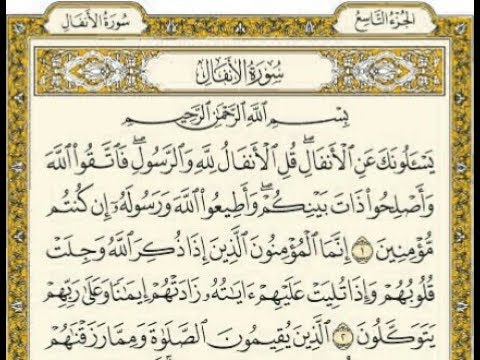 الجزء التاسع
سورة الأنفال
سُورَةُ الأَنفَالِ
بِسْمِ اللَّهِ الرَّحْمَٰنِ الرَّحِيمِ
يَسْـَٔلُونَكَ عَنِ ٱلْأَنفَالِ ۖ قُلِ ٱلْأَنفَالُ لِلَّهِ وَٱلرَّسُولِ ۖ فَٱتَّقُوا۟ ٱللَّهَ
وَأَصْلِحُوا۟ ذَاتَ بَيْنِكُمْ ۖ وَأَطِيعُوا۟ ٱللَّهَ وَرَسُولَهُۥٓ إِن كُنتُم
مُّؤْمِنِينَ ١ إِنَّمَا ٱلْمُؤْمِنُونَ ٱلَّذِينَ إِذَا ذُكِرَ ٱللَّهُ وَجِلَتْ
قُلُوبُهُمْ وَإِذَا تُلِيَتْ عَلَيْهِمْ ءَايَٰتُهُۥ زَادَتْهُمْ إِيمَٰنًا وَعَلَىٰ رَبِّهِمْ
يَتَوَكَّلُونَ ٢ ٱلَّذِينَ يُقِيمُونَ ٱلصَّلَوٰةَ وَمِمَّا رَزَقْنَٰهُمْ